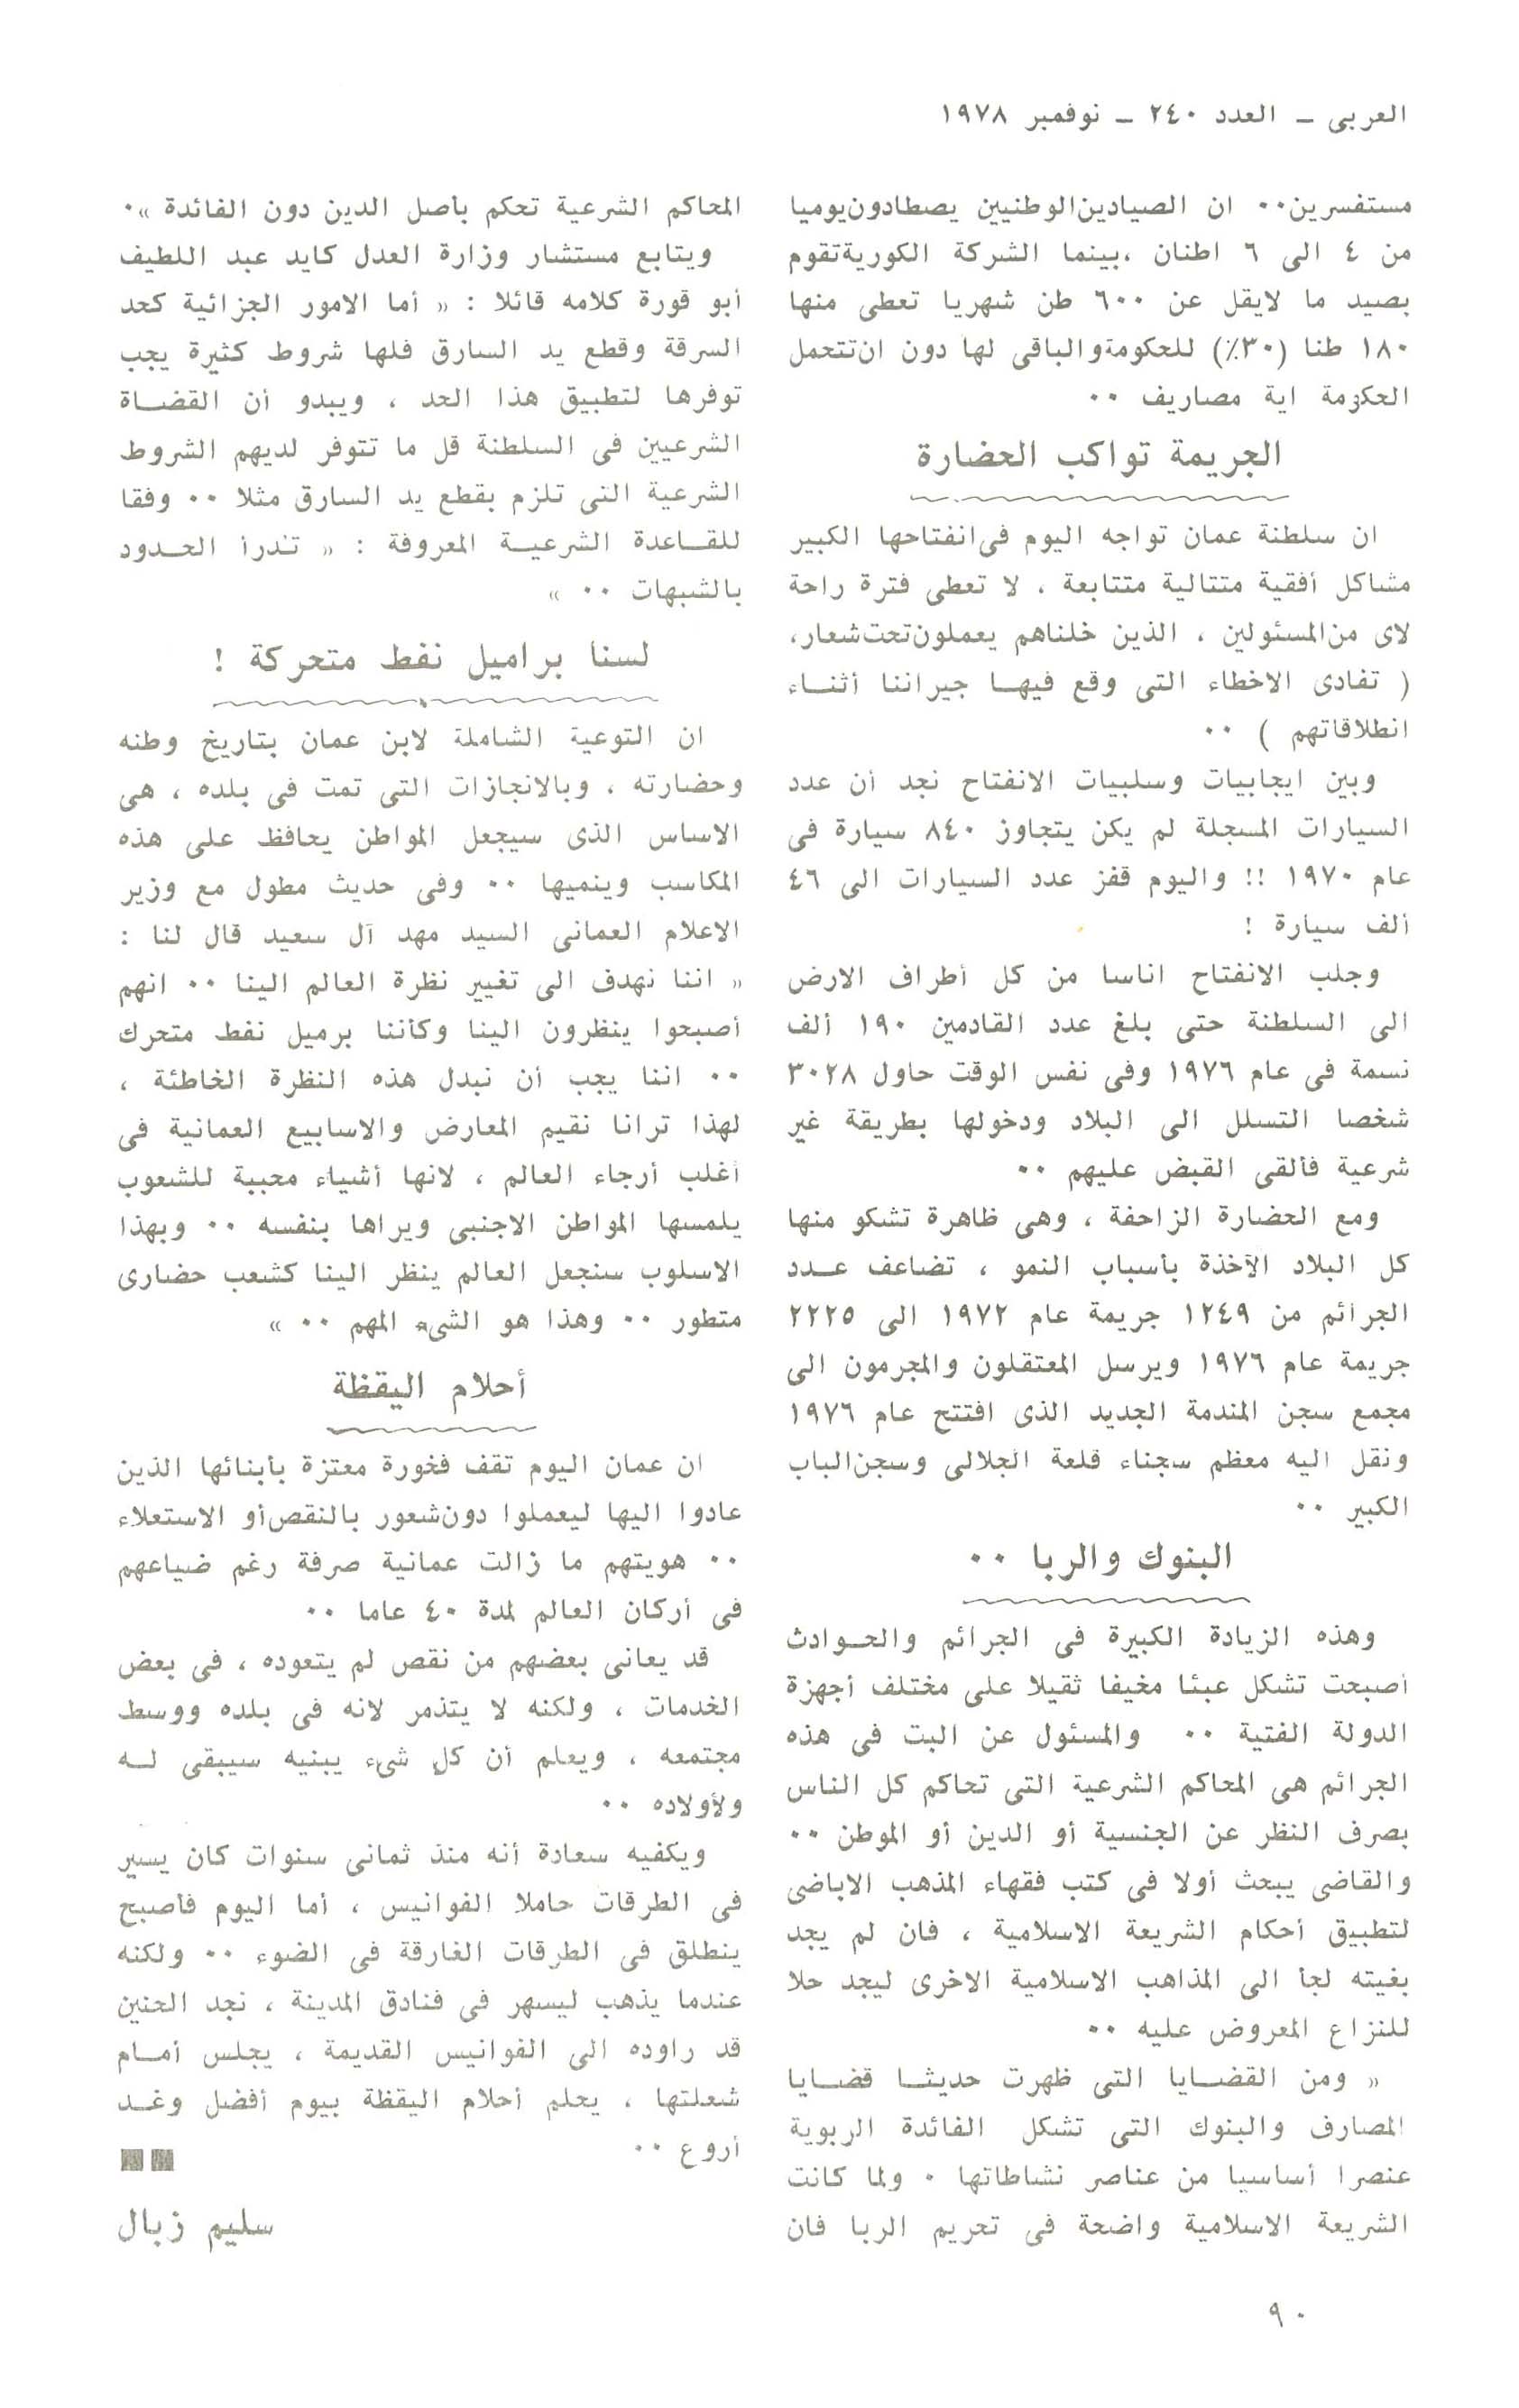 العربى ـ العدد ٢٤٠ ـ نوفمبر ١٩٧٨
مستفسرين ٠٠ ان الصيادين الوطنيين يصطادون يوميا
من ٤ الى ٦ اطنان ، بينما الشركة الكورية تقوم
بصيد ما لايقل عن ٦٠٠ طن شهريا تعطى منها
١٨٠ طنا (٣٠٪) للحكومة والباقى لها دون ان تتحمل
الحكومة اية مصاريف ٠٠
الجريمة تواكب الحضارة
ان سلطنة عمان تواجه اليوم فى انفتاحها الكبير
مشاكل أفقية متتالية متتابعة ، لا تعطى فترة راحة
لاى من المسئولين ، الذين خلناهم يعملون تحت شعار،
( تفادى الاخطاء التى وقع فيهـا جيراننا أثنـاء
انطلاقاتهم ) ٠٠
وبين ايجابيات وسلبيات الانفتاح نجد أن عدد
السيارات المسجلة لم يكن يتجاوز ٨٤٠ سيارة فى
عام ١٩٧٠ !! واليوم قفز عدد السيارات الى ٤٦
ألف سيارة !
وجلب الانفتاح اناسا من كل أطراف الارض
الى السلطنة حتى بلغ عدد القادمين ١٩٠ ألف
نسمة فى عام ١٩٧٦ وفى نفس الوقت حاول ٣٠٢٨
شخصا التسلل الى البلاد ودخولها بطريقة غير
شرعية فألقى القبض عليهم ٠٠
ومع الحضارة الزاحفة ، وهى ظاهرة تشكو منها
كل البلاد الآخذة بأسباب النمو ، تضاعف عـدد
الجرائم من ١٢٤٩ جريمة عام ١٩٧٢ الى ٢٢٢٥
جريمة عام ١٩٧٦ ويرسل المعتقلون والمجرمون الى
مجمع سجن المندمة الجديد الذى افتتح عام ١٩٧٦
ونقل اليه معظم سجناء قلعة الجلالى وسجن الباب
الكبير ٠٠
البنوك والربا ٠٠
وهذه الزيادة الكبيرة فى الجرائم والحـوادث
أصبحت تشكل عبئا مخيفا ثقيلا على مختلف أجهزة
الدولة الفتية ٠٠ والمسئول عن البت فى هذه
الجرائم هى المحاكم الشرعية التى تحاكم كل الناس
بصرف النظر عن الجنسية أو الدين أو الموطن ٠٠
والقاضى يبحث أولا فى كتب فقهاء المذهب الاباضى
لتطبيق أحكام الشريعة الاسلامية ، فان لم يجد
بغيته لجأ الى المذاهب الاسلامية الاخرى ليجد حلا
للنزاع المعروض عليه ٠٠
« ومن القضـايا التى ظهرت حديثـا قضـايا
المصارف والبنوك التى تشكل الفائدة الربوية
عنصرا أساسيا من عناصر نشاطاتها ٠ ولما كانت
الشريعة الاسلامية واضحة فى تحريم الربا فان
المحاكم الشرعية تحكم بأصل الدين دون الفائدة »٠
ويتابع مستشار وزارة العدل كايد عبد اللطيف
أبو قورة كلامه قائلا : « أما الامور الجزائية كحد
السرقة وقطع يد السارق فلها شروط كثيرة يجب
توفرها لتطبيق هذا الحد ، ويبدو أن القضـاة
الشرعيين فى السلطنة قل ما تتوفر لديهم الشروط
الشرعية التى تلزم بقطع يد السارق مثلا ٠٠ وفقا
للقـاعدة الشرعيـة المعروفة : « تدرأ الحـدود
بالشبهات ٠٠ »
لسنا براميل نفط متحركة !
ان التوعية الشاملة لابن عمان بتاريخ وطنه
وحضارته ، وبالانجازات التى تمت فى بلده ، هى
الاساس الذى سيجعل المواطن يحافظ على هذه
المكاسب وينميها ٠٠ وفى حديث مطول مع وزير
الاعلام العمانى السيد مهد آل سعيد قال لنا :
« اننا نهدف الى تغيير نظرة العالم الينا ٠٠ انهم
أصبحوا ينظرون الينا وكأننا برميل نفط متحرك
٠٠ اننا يجب أن نبدل هذه النظرة الخاطئة ،
لهذا ترانا نقيم المعارض والاسابيع العمانية فى
أغلب أرجاء العالم ، لانها أشياء محببة للشعوب
يلمسها المواطن الاجنبى ويراها بنفسه ٠٠ وبهذا
الاسلوب سنجعل العالم ينظر الينا كشعب حضارى
متطور ٠٠ وهذا هو الشىء المهم ٠٠ »
أحلام اليقظة
ان عمان اليوم تقف فخورة معتزة بأبنائها الذين
عادوا اليها ليعملوا دون شعور بالنقص أو الاستعلاء
٠٠ هويتهم ما زالت عمانية صرفة رغم ضياعهم
فى أركان العالم لمدة ٤٠ عاما ٠٠
قد يعانى بعضهم من نقص لم يتعوده ، فى بعض
الخدمات ، ولكنه لا يتذمر لانه فى بلده ووسط
مجتمعه ، ويعلم أن كل شىء يبنيه سيبقى لـه
ولأولاده ٠٠
ويكفيه سعادة أنه منذ ثمانى سنوات كان يسير
فى الطرقات حاملا الفوانيس ، أما اليوم فأصبح
ينطلق فى الطرقات الغارقة فى الضوء ٠٠ ولكنه
عندما يذهب ليسهر فى فنادق المدينة ، نجد الحنين
قد راوده الى الفوانيس القديمة ، يجلس أمـام
شعلتها ، يحلم أحلام اليقظة بيوم أفضل وغـد
أروع ٠٠
سليم زبال
٩٠